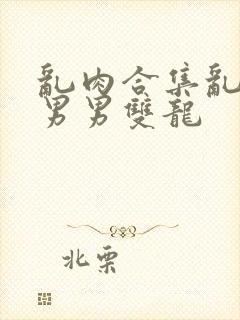 亂肉合集亂
男男雙龍
北栗